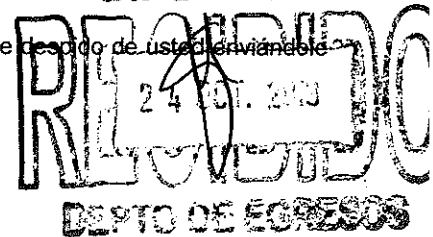 e despido de usted enviándole
RECIBIDO
24 OCT.
DEPTO DE EGRESOS